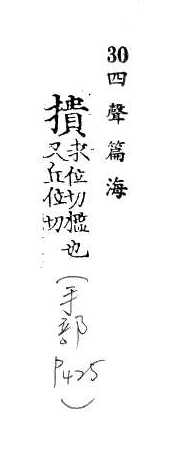 30 四聲篇海
撌求位切櫃也
又丘位切
(手部 P425)